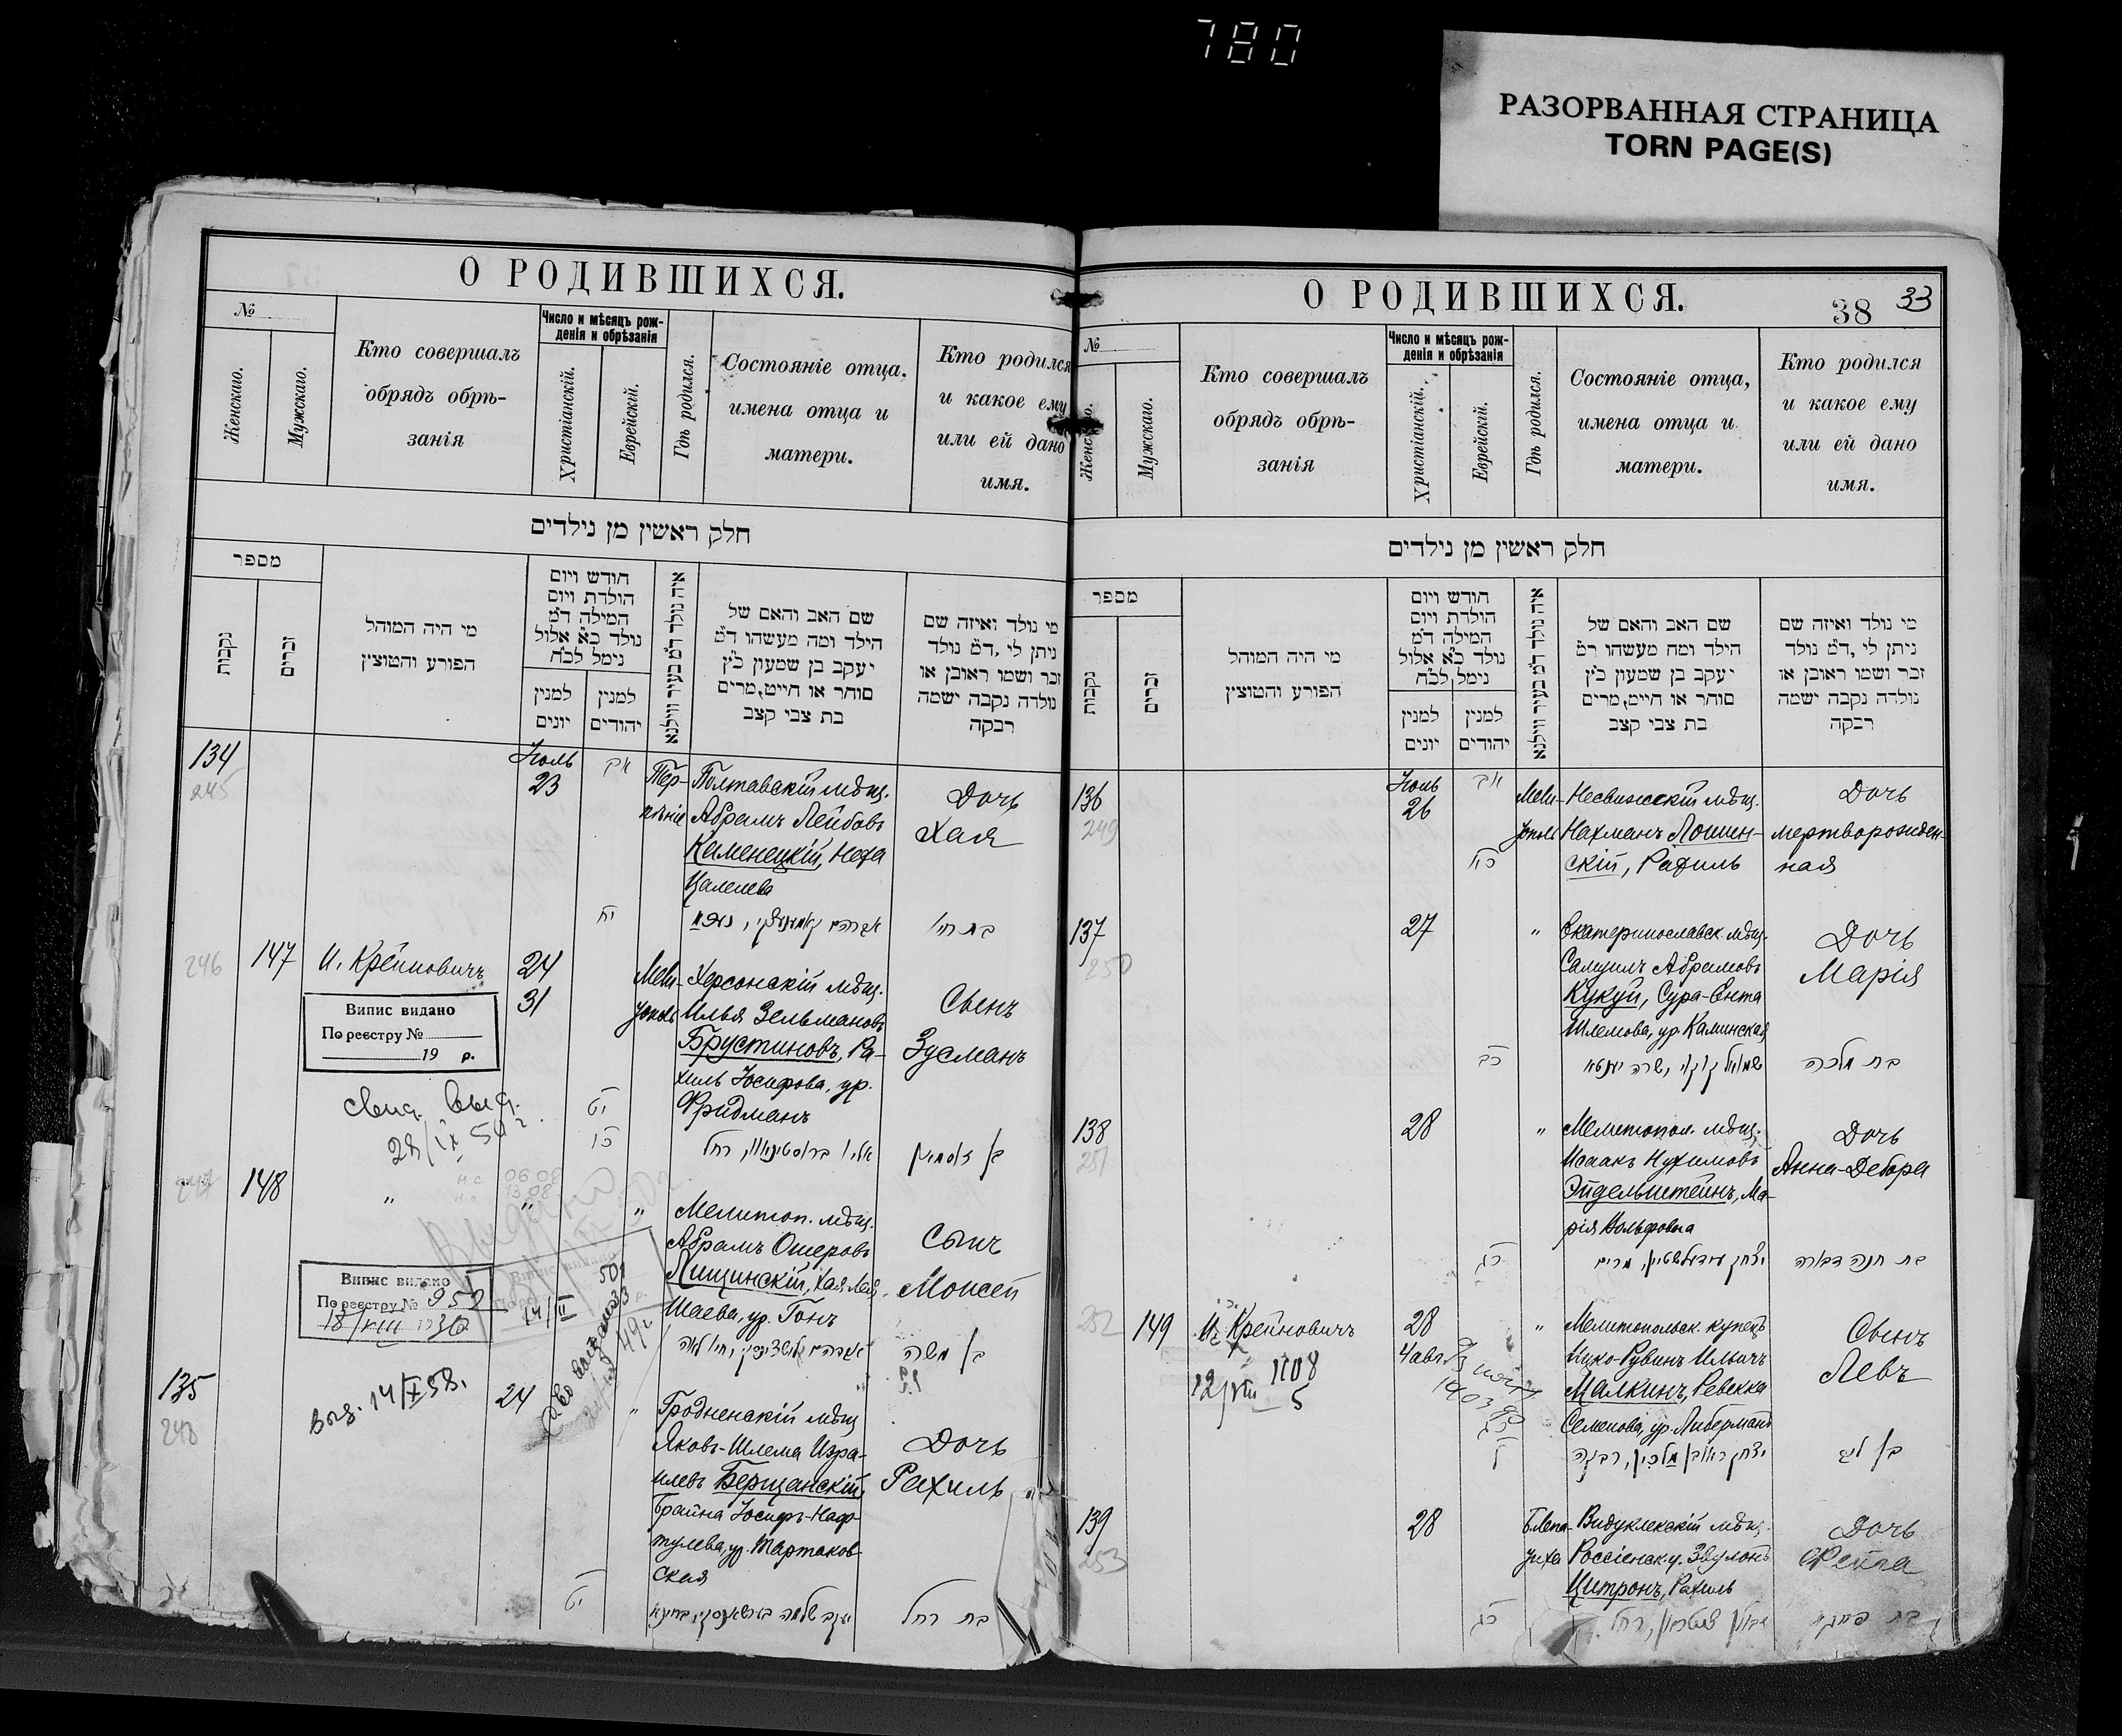 780
РАЗОРВАННАЯ СТРАНИЦА
TORN PAGE(S)
О РОДИВШИХСЯ.
№
Женскаго.
Мужскаго.
Кто совершалъ
обрядъ обрѣ-
занія
Число и мѣсяцъ рож-
денія и обрѣзанія
Христіанскій.
Еврейскій.
Гдѣ родился.
Состояніе отца,
имена отца и
матери.
Кто родился
и какое ему
или ей дано
имя.
חלק ראשון מן נילדים
מספר
נקבות
זכרים
מי היה המוהל
הפורע והמוצץ
חודש ויום
הולדת ויום
המילה ד״מ
נולד כ״א אלול
נימל לכ״ח
למנין
יונים
למנין
יהודים
איה נולד ד״מ בעיר ווילנא
שם האב והאם של
הילד ומה מעשהו ד״מ
יעקב בן שמעון כ״ץ
סוחר או חייט,מרים
בת צבי קצב
מי נולד ואיזה שם
ניתן לי ,ד״מ נולד
זכר ושמו ראובן או
נולדה נקבה ישמה
רבקה
134
245
Іюль
23
אב
Тер-
пѣніе
Полтавскій мѣщ.
Абрамъ Лейбовъ
Каменецкій, Неха
Дочь
Хая
יח
246
147
И. Крейновичъ
24
31
Мели-
тополь
Херсонскій мѣщ.
Илья Зельмановъ
Брустиновъ, Ра-
хиль Іосифова, ур.
Фридманъ
Сынъ
Зусманъ
Випис видано
По реєстру №
19 р.
Свид. выд.
28/IX 50 г.
יט
כו
148
"
"
"
Мелитоп. мѣщ.
Абрамъ Ошеровъ
Лищинскій, Хая Лея
Шаева, ур. Гонъ
Сынъ
Моисей
בן משה
Випис видано
По реєстру № 952
18/VIII 193
135
248
Выд. 14/X 58.
24
"
Гродненскій мѣщ
Яковъ-Шлема Изра-
илевъ Берщанскій,
Брайна Іосифъ-Наф-
тулева, ур. Тартаков-
ская
Дочь
Рахиль
יט
בת רחל
О РОДИВШИХСЯ.
38 33
№
Женскаго.
Мужскаго.
Кто совершалъ
обрядъ обрѣ-
занія
Число и мѣсяцъ рож-
денія и обрѣзанія
Христіанскій.
Еврейскій.
Гдѣ родился.
Состояніе отца,
имена отца и
матери.
Кто родился
и какое ему
или ей дано
имя.
חלק ראשון מן נילדים
מספר
נקבות
זכרים
מי היה המוהל
הפורע והמוצץ
חודש ויום
הולדת ויום
המילה ד״מ
נולד כ״א אלול
נימל לכ״ח
למנין
יונים
למנין
יהודים
איה נולד ד״מ בעיר ווילנא
שם האב והאם של
הילד ומה מעשהו ד״מ
יעקב בן שמעון כ״ץ
סוחר או חייט,מרים
בת צבי קצב
מי נולד ואיזה שם
ניתן לי ,ד״מ נולד
זכר ושמו ראובן או
נולדה נקבה ישמה
רבקה
136
249
Іюль
26
אב
Мели-
тополь
Несвижскій мѣщ.
Нахманъ Лошин-
скій, Рахиль
Дочь
мертворожден-
ная
137
250
27
"
Екатеринославск. мѣщ.
Самуилъ Абрамовъ
Кукуй, Сура-Ента
Шлемова, ур. Каминская
Дочь
Марія
כב
בת מלכה
138
251
28
"
Мелитопол. мѣщ.
Исаакъ Нухимовъ
Эйдельштейнъ, Ма-
рія Вольфовна
Дочь
Анна-Дебора
כג
בת חנה דבורה
252
149
И. Крейновичъ
28
4 авг.
"
Мелитопольск. купецъ
Ицко-Рувинъ Ильичъ
Малкинъ, Ревекка
Семенова, ур. Либерманъ
Сынъ
Левъ
12/VIII 1108
5
כג
139
253
28
Видуклекскій мѣщ.
Россіенск. у. Звулонъ
Цитронъ, Рахиль
Дочь
Фейга
כג